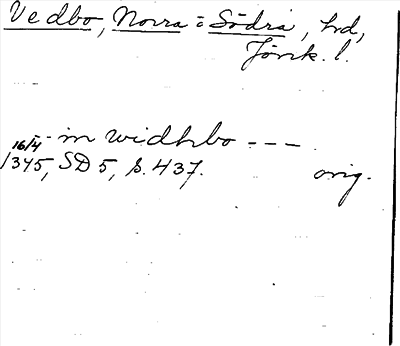 Vedbo, Norra o Södra, hd,
Jönk. l.
-- in widhbo ---
16/4
1345, SD 5, s. 437. orig.